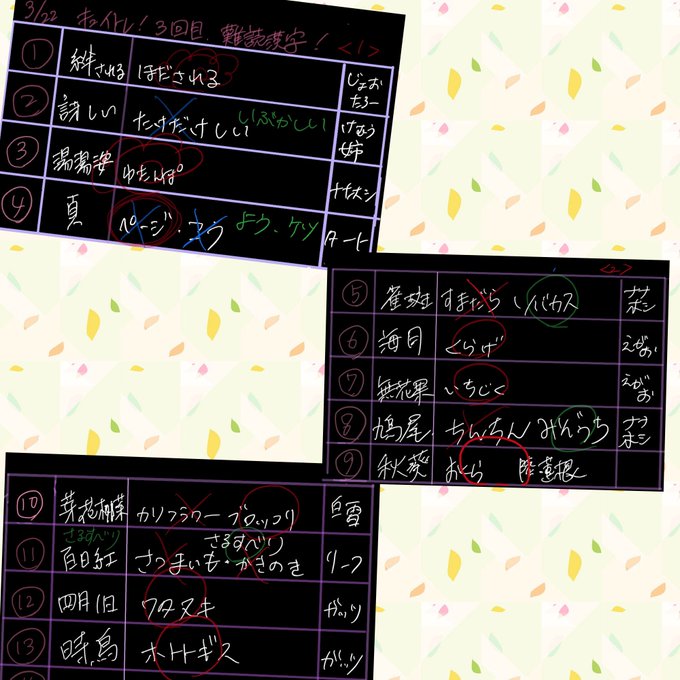 3/22 ホワイトレ! 3回目 難読漢字! <1>
① 絆される ほだされる じょおたろー
② 訝しい たけだけしい いぶかしい けむう姉
③ 湯湯婆 ゆたんぽ ナナホシ
④ 頁 ページ・よう よう、ケツ タート
<2>
⑤ 雀斑 すまだら ソバカス ナナホシ
⑥ 海月 くらげ えがお
⑦ 無花果 いちじく えがお
⑧ 鳩尾 ちんちん みぞうち ナナホシ
⑨ 秋葵 おくら 陸蓮根
⑩ 芽花椰菜 カリフラワー ブロッコリ 白雪
さるすべり さるすべり
⑪ 百日紅 さつまいも・かきのき リーフ
⑫ 四月一日 ワタヌキ ガッツ
⑬ 時鳥 ホトトギス ガッツ